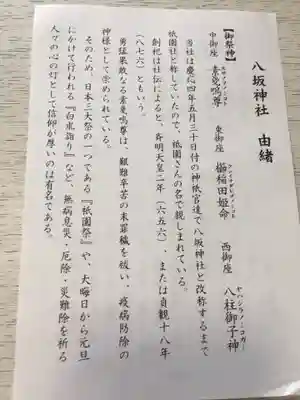 八坂神社 由緒
【御祭神】
中御座 素戔嗚尊 東御座 櫛稲田姫命 西御座 八柱御子神
当社は慶応四年五月三十日付の神祇官達で八坂神社と改称するまで
祇園社と称していたので、祇園さんの名で親しまれている。
創祀は社伝によると、斉明天皇二年（六五六）、または貞観十八年
（八七六）ともいう。
勇猛果敢なる素戔嗚尊は、艱難辛苦の末罪穢を祓い、疫病防除の
神様として崇められている。
そのため、日本三大祭の一つである『祇園祭』や、大晦日から元旦
にかけて行われる『白朮詣り』など、無病息災・厄除・災難除を祈る
人々の心の灯として信仰が厚いのは有名である。